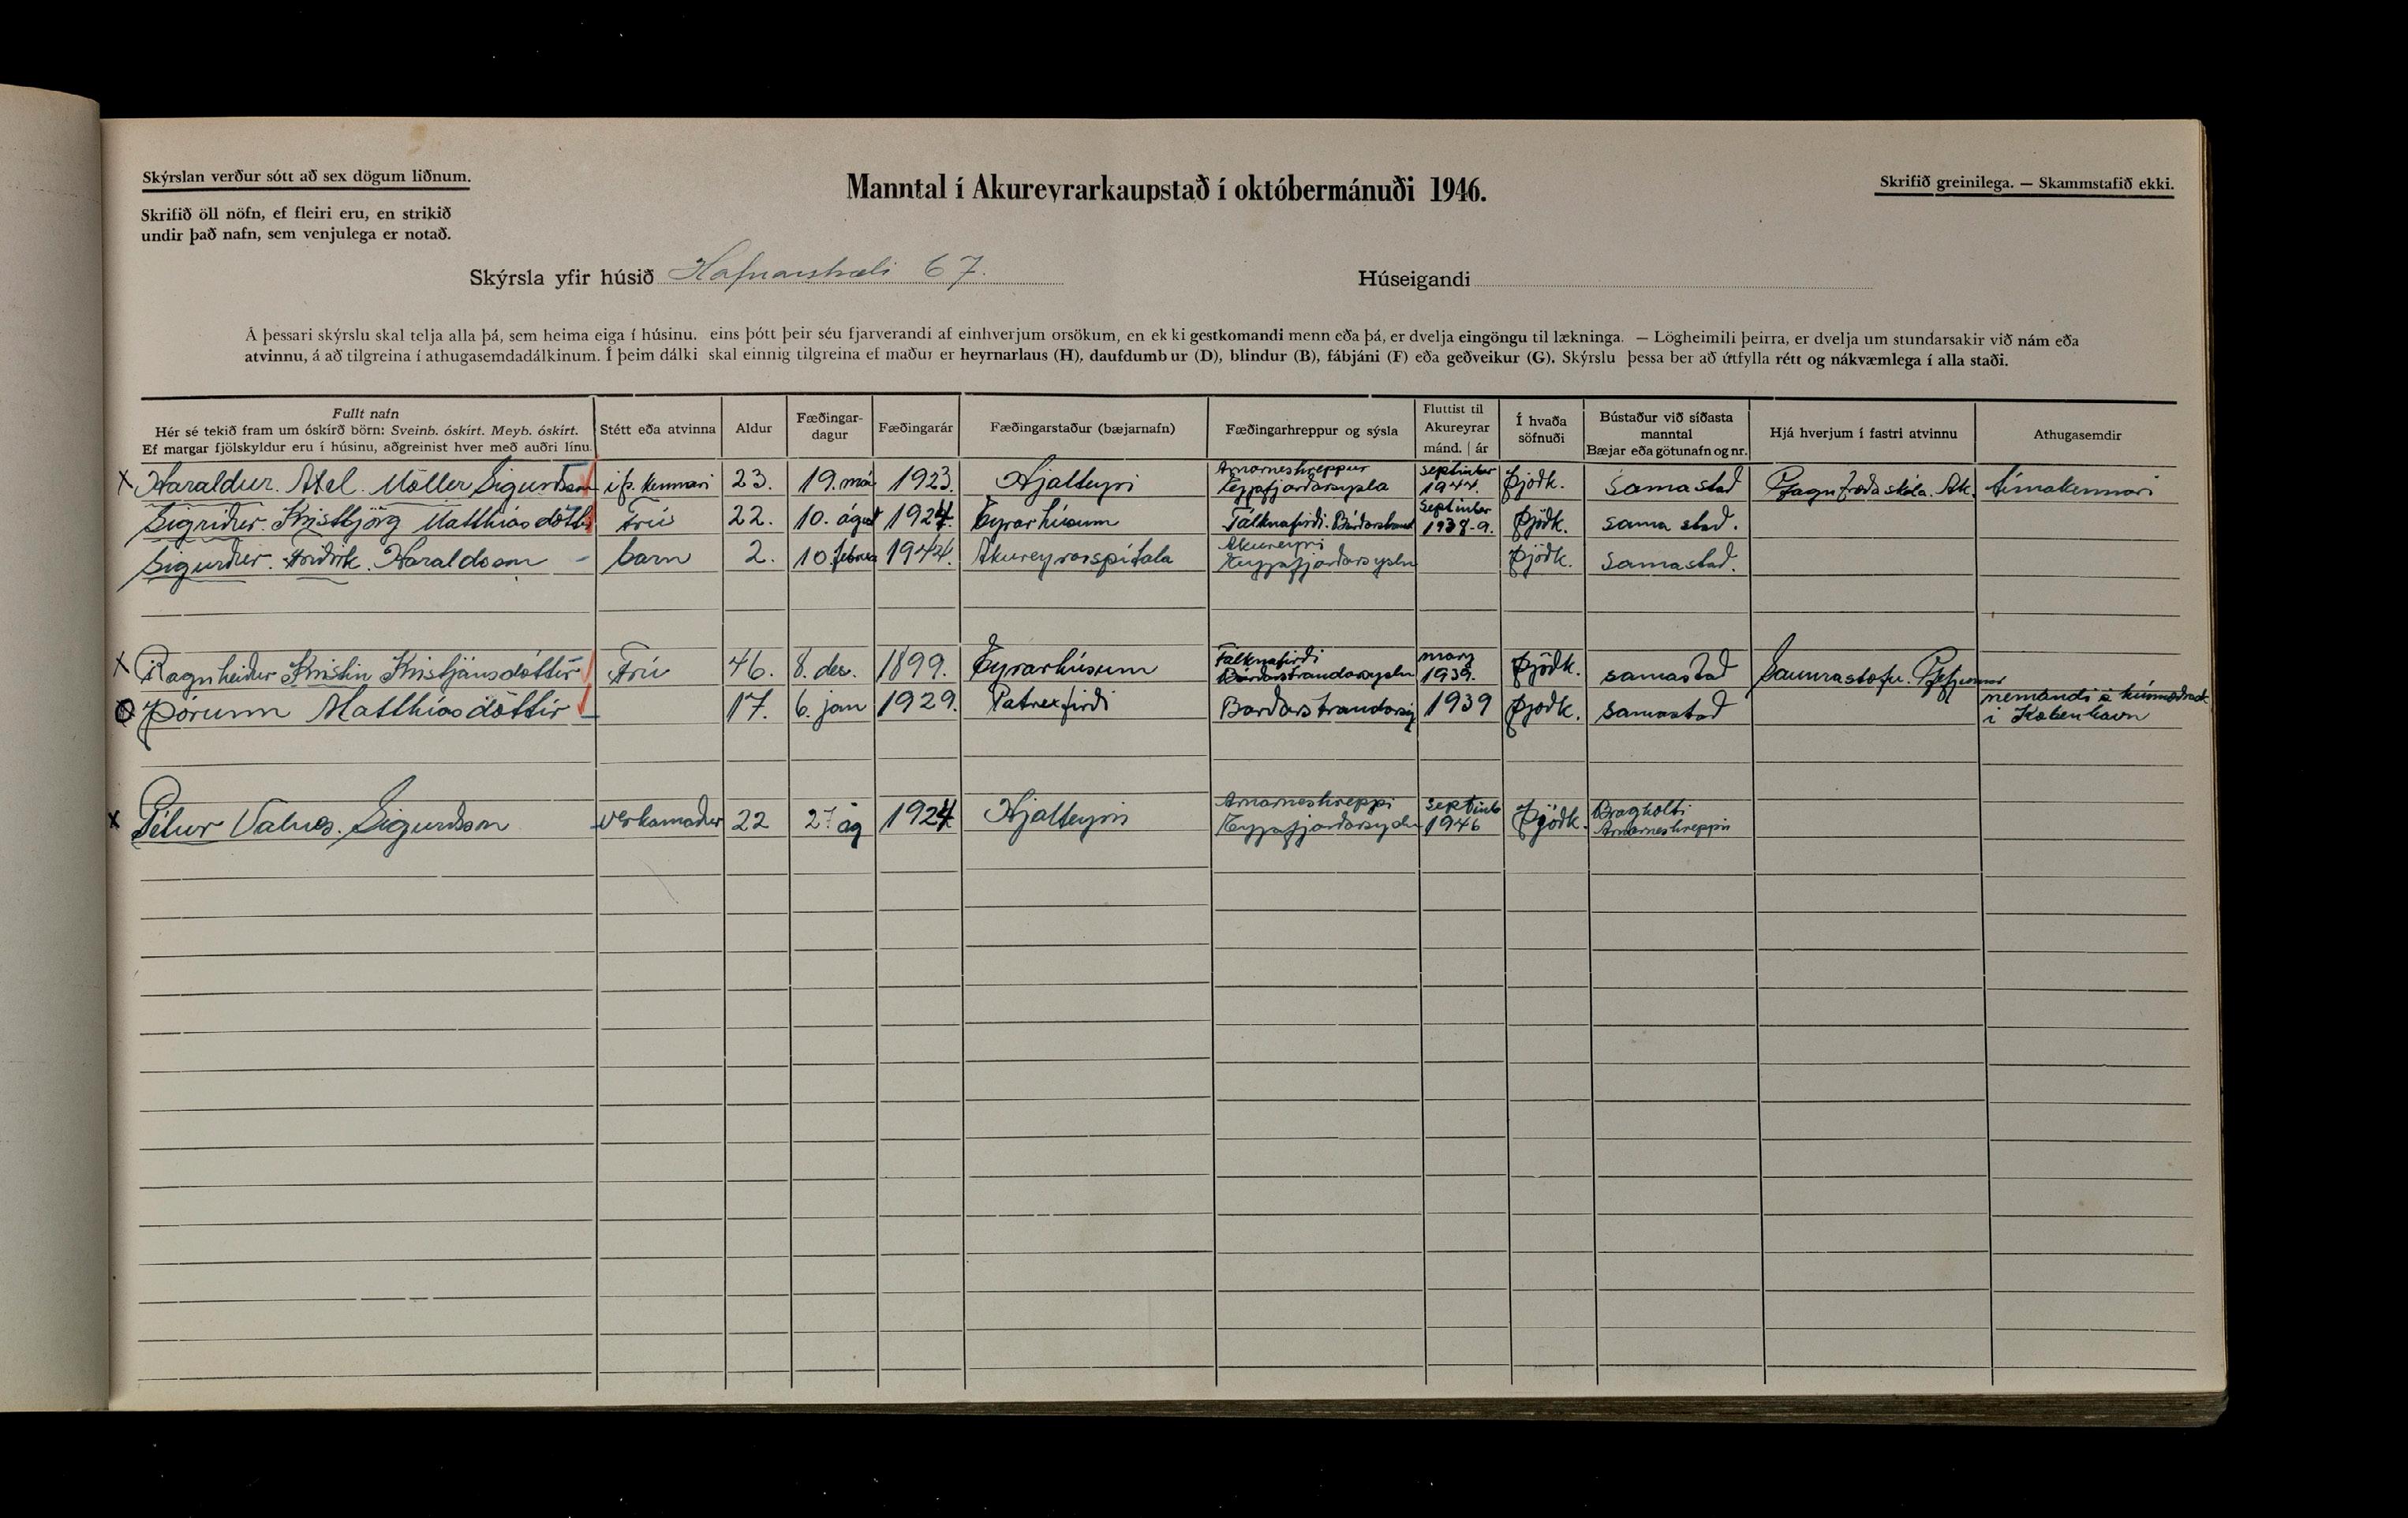 Skýrslan verður sótt að sex dögum liðnum.
Manntal í Akureyrarkaupstað í októbermánuði 1946.
Skrifið greinilega. — Skammstafið ekki.
Skrifið öll nöfn, ef fleiri eru, en strikið
undir það nafn, sem venjulega er notað.
Skýrsla yfir húsið Hafnarstræti 67.
Húseigandi
Á þessari skýrslu skal telja alla þá, sem heima eiga í húsinu, eins þótt þeir séu fjarverandi af einhverjum orsökum, en ekki gestkomandi menn eða þá, er dvelja eingöngu til lækninga. — Lögheimili þeirra, er dvelja um stundarsakir við nám eða
atvinnu, á að tilgreina í athugasemdadálkinum. Í þeim dálki skal einnig tilgreina ef maður er heyrnarlaus (H), daufdumbur (D), blindur (B), fábjáni (F) eða geðveikur (G). Skýrslu þessa ber að útfylla rétt og nákvæmlega í alla staði.
Fullt nafn
Hér sé tekið fram um óskírð börn: Sveinb. óskírt. Meyb. óskírt.
Ef margar fjölskyldur eru í húsinu, aðgreinist hver með auðri línu.
Stétt eða atvinna
Aldur
Fæðingar-
dagur
Fæðingarár
Fæðingarstaður (bæjarnafn)
Fæðingarhreppur og sýsla
Fluttist til
Akureyrar
mánd. | ár
Í hvaða
söfnuði
Bústaður við síðasta
manntal
Bæjar eða götunafn og nr.
Hjá hverjum í fastri atvinnu
Athugasemdir
x Haraldur. Axel. Möller Sigurðsson íþ. kennari 23. 19. maí 1923. Hjalteyri Arnarneshreppur Eyjafjarðarsýsla september 1944. Þjóðk. sama stað Gagnfræðaskóla. Ak. tímakennari
Sigríður. Kristbjörg Matthíasdóttir Frú 22. 10. ágúst 1924. Eyrarhúsum Tálknafirði. Barðarstrand september 1938-9. Þjóðk. sama stað.
Sigurður. Friðrik. Haraldsson - barn 2. 10. febrúar 1944. Akureyrarspítala Akureyri Eyjafjarðarsýslu Þjóðk. sama stað.
x Ragnheiður Kristín Kristjánsdóttir Frú 46. 8. des. 1899. Eyrarhúsum Tálknafirði Barðarstrandarsýslu marz 1939. Þjóðk. samastað Saumastofu. Gefjunnar
Þórunn Matthíasdóttir 17. 6. jan 1929. Patrexfirði Barðarstrandarsý 1939 Þjóðk. samastað nemandi á húsmæðrask
í Köbenhavn
x Pétur Sigurðsson verkamaður 22 ág 1924 Hjalteyri Arnarneshreppi Eyjafjarðarsýslu septemb 1946 Þjóðk. Bragholti Arnarneshreppi